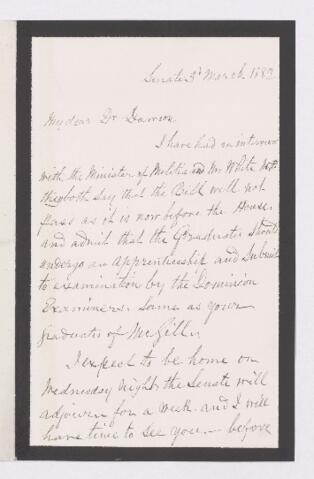 Senate 3d March 1883
My dear Dr Dawson
I have had an interview
with the Minister of Militia and Mr White
they both say that the Bill will not
pass as it is now before the House,
and admit that the Graduates should
undergo an apprenticeship and submit
to examination by the Dominion
Examiners. Same as your
graduates of McGill.
I expect to be home on
Wednesday night, the Senate will
adjourn for a week. and I will
have time to see you — before